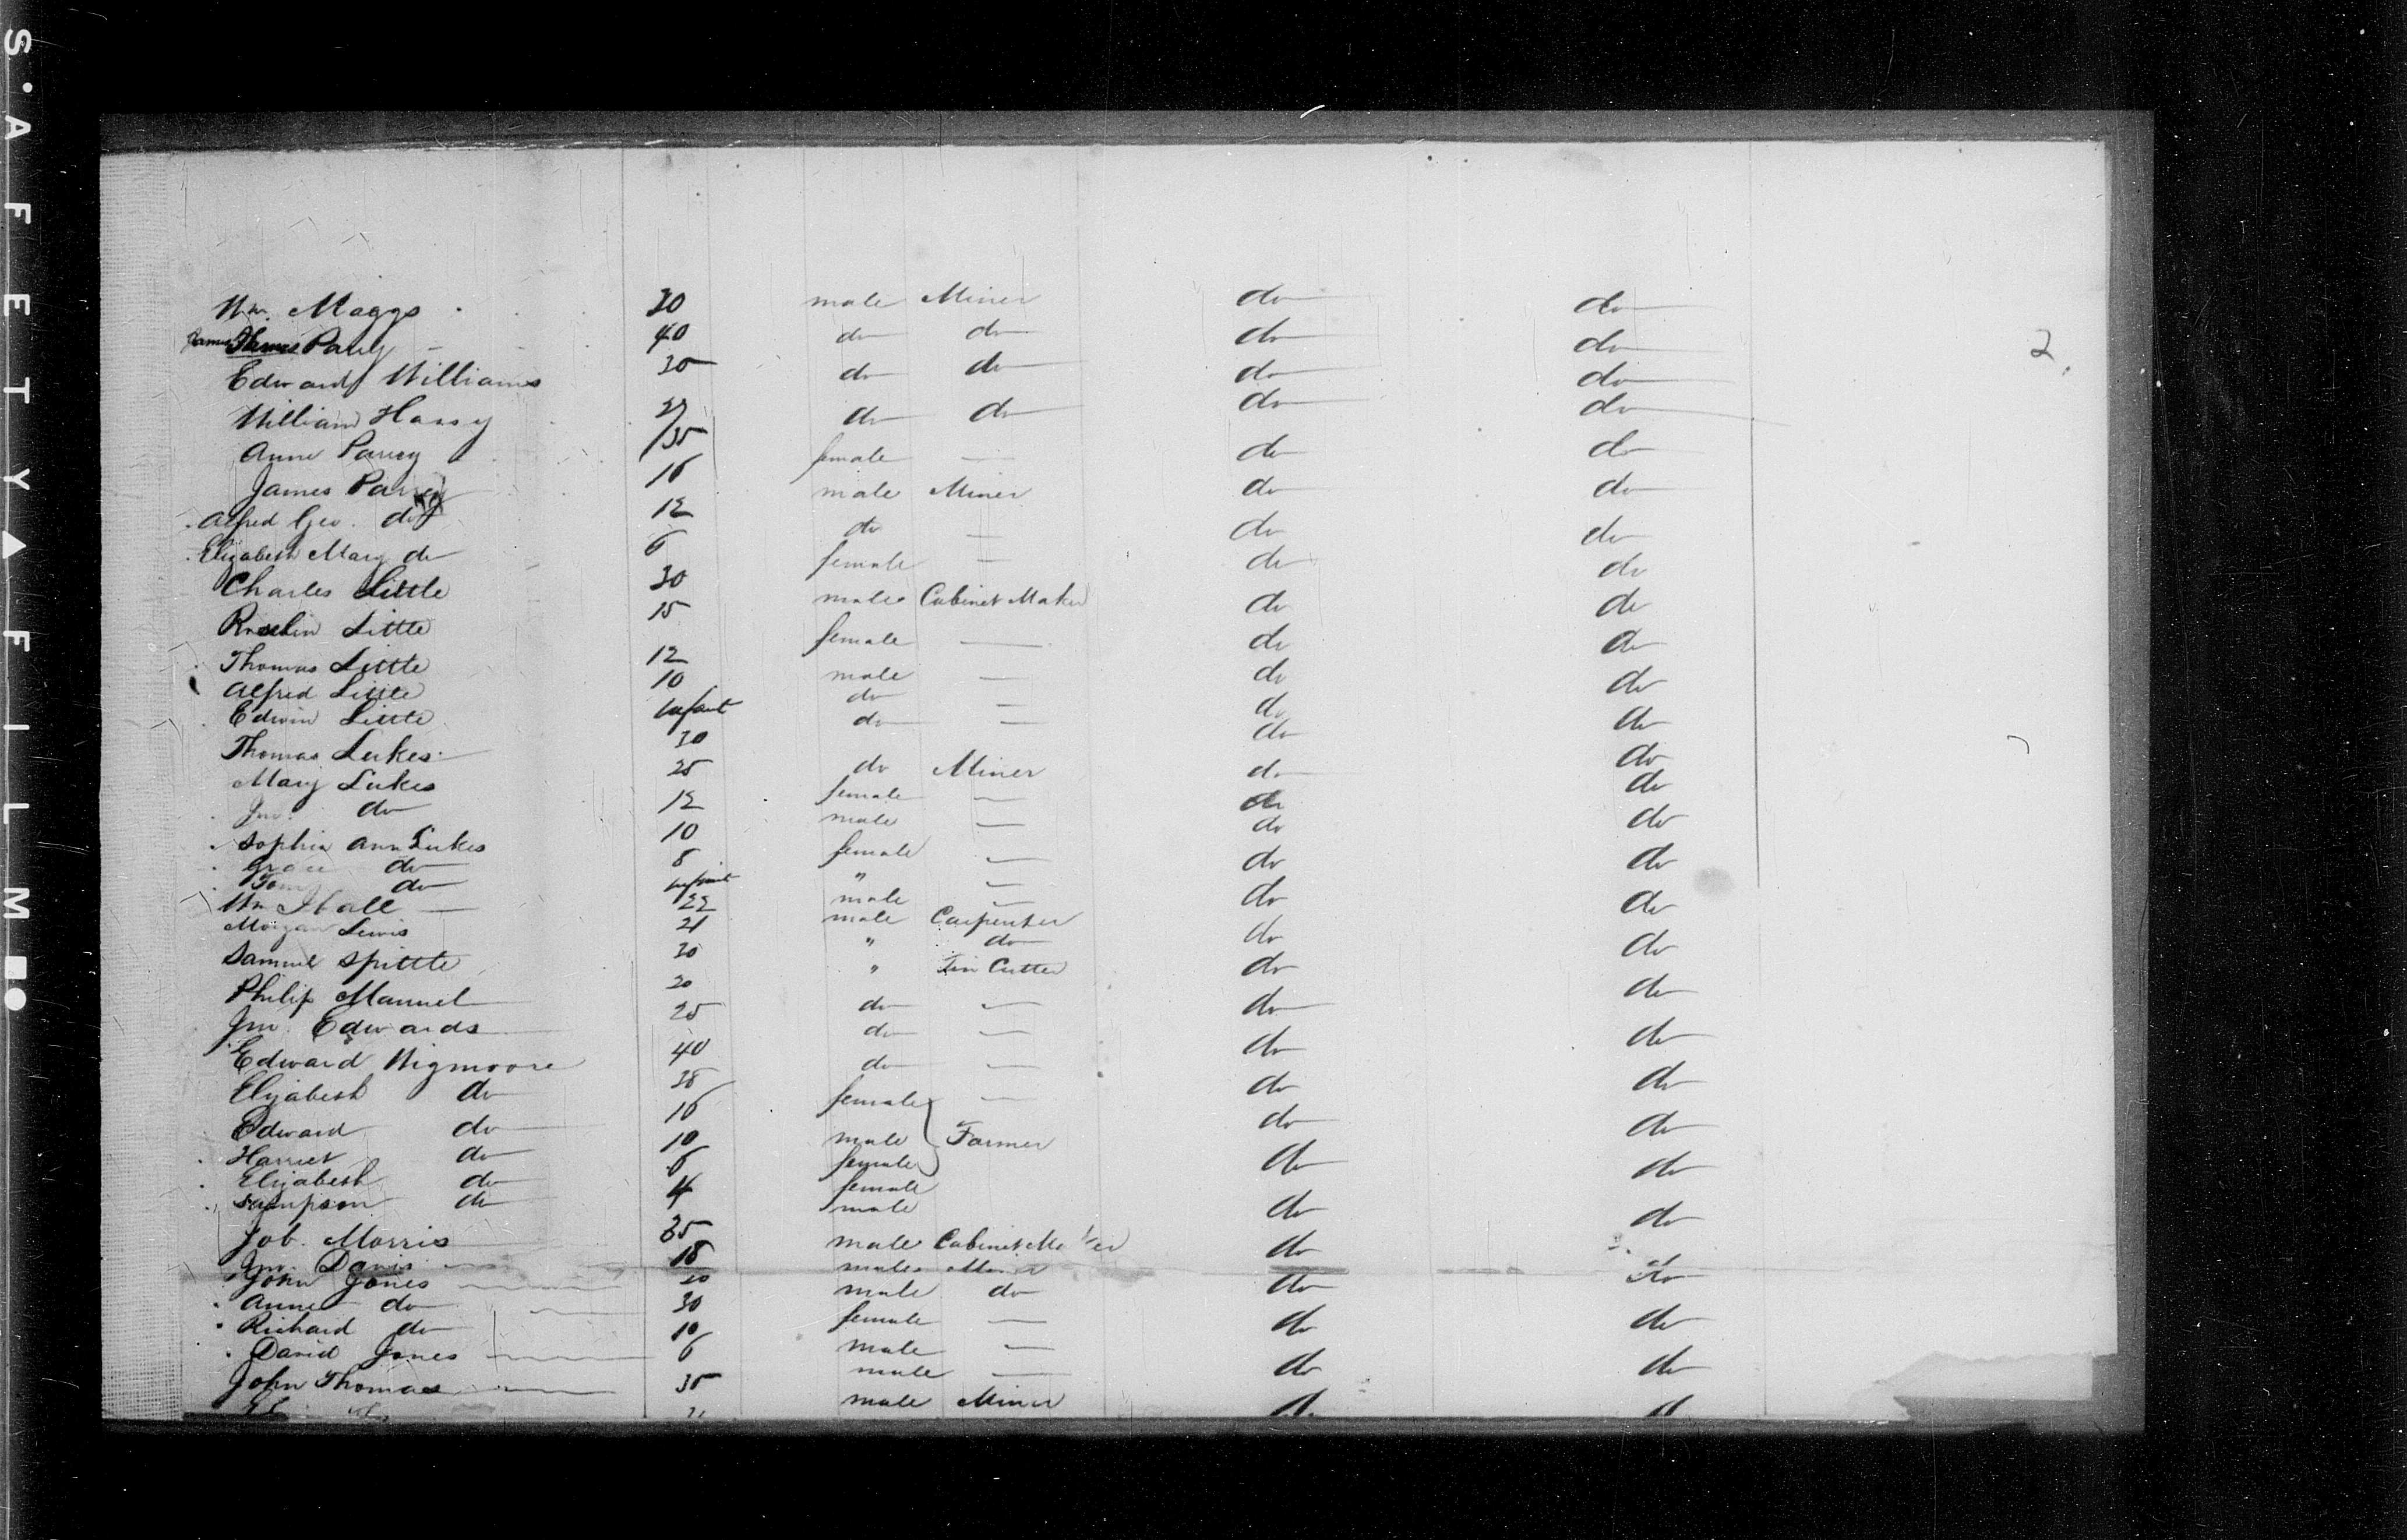 Wm. Maggs 30 male Miner do do
James Parry 40 do do do do 2
Edward Williams 30 do do do do
William Hassy 27 do do do do
Anne Parrey 35 female — do do
James Parrey 16 male Miner do do
Alfred Geo. do 12 do — do do
Elizabeth Mary do 6 female — do do
Charles Little 30 male Cabinet Maker do do
Little 15 female — do do
Thomas Little 12 male — do do
Alfred Little 10 do — do do
Edwin Little Infant do — do do
Thomas Lukes 30 do Miner do do
Mary Lukes 25 female — do do
Jno. do 12 male — do do
Sophia Ann Lukes 10 female — do do
Grace do 8 " — do do
do Infant male — do do
Wm Hall 22 male Carpenter do do
Morgan Lewis 21 " do do do
Samuel Spittle 20 " Tin Cutter do do
Philip Manuel 20 do — do do
Jno. Edwards 25 do — do do
Edward Wigmoore 40 do — do do
Elizabeth do 38 female — do do
Edward do 16 male Farmer do do
Harriet do 10 female
Elizabeth do 6 female do do
Sampson do 4 male do do
Job. Morris 35 male Cabinet Maker do do
Jno. Davis 18 male Miner do do
John Jones 30 male do do do
Anne do 30 female — do do
Richard do 10 male — do do
David Jones 6 male —
John Thomas 35 male Miner
SAFETY FILM